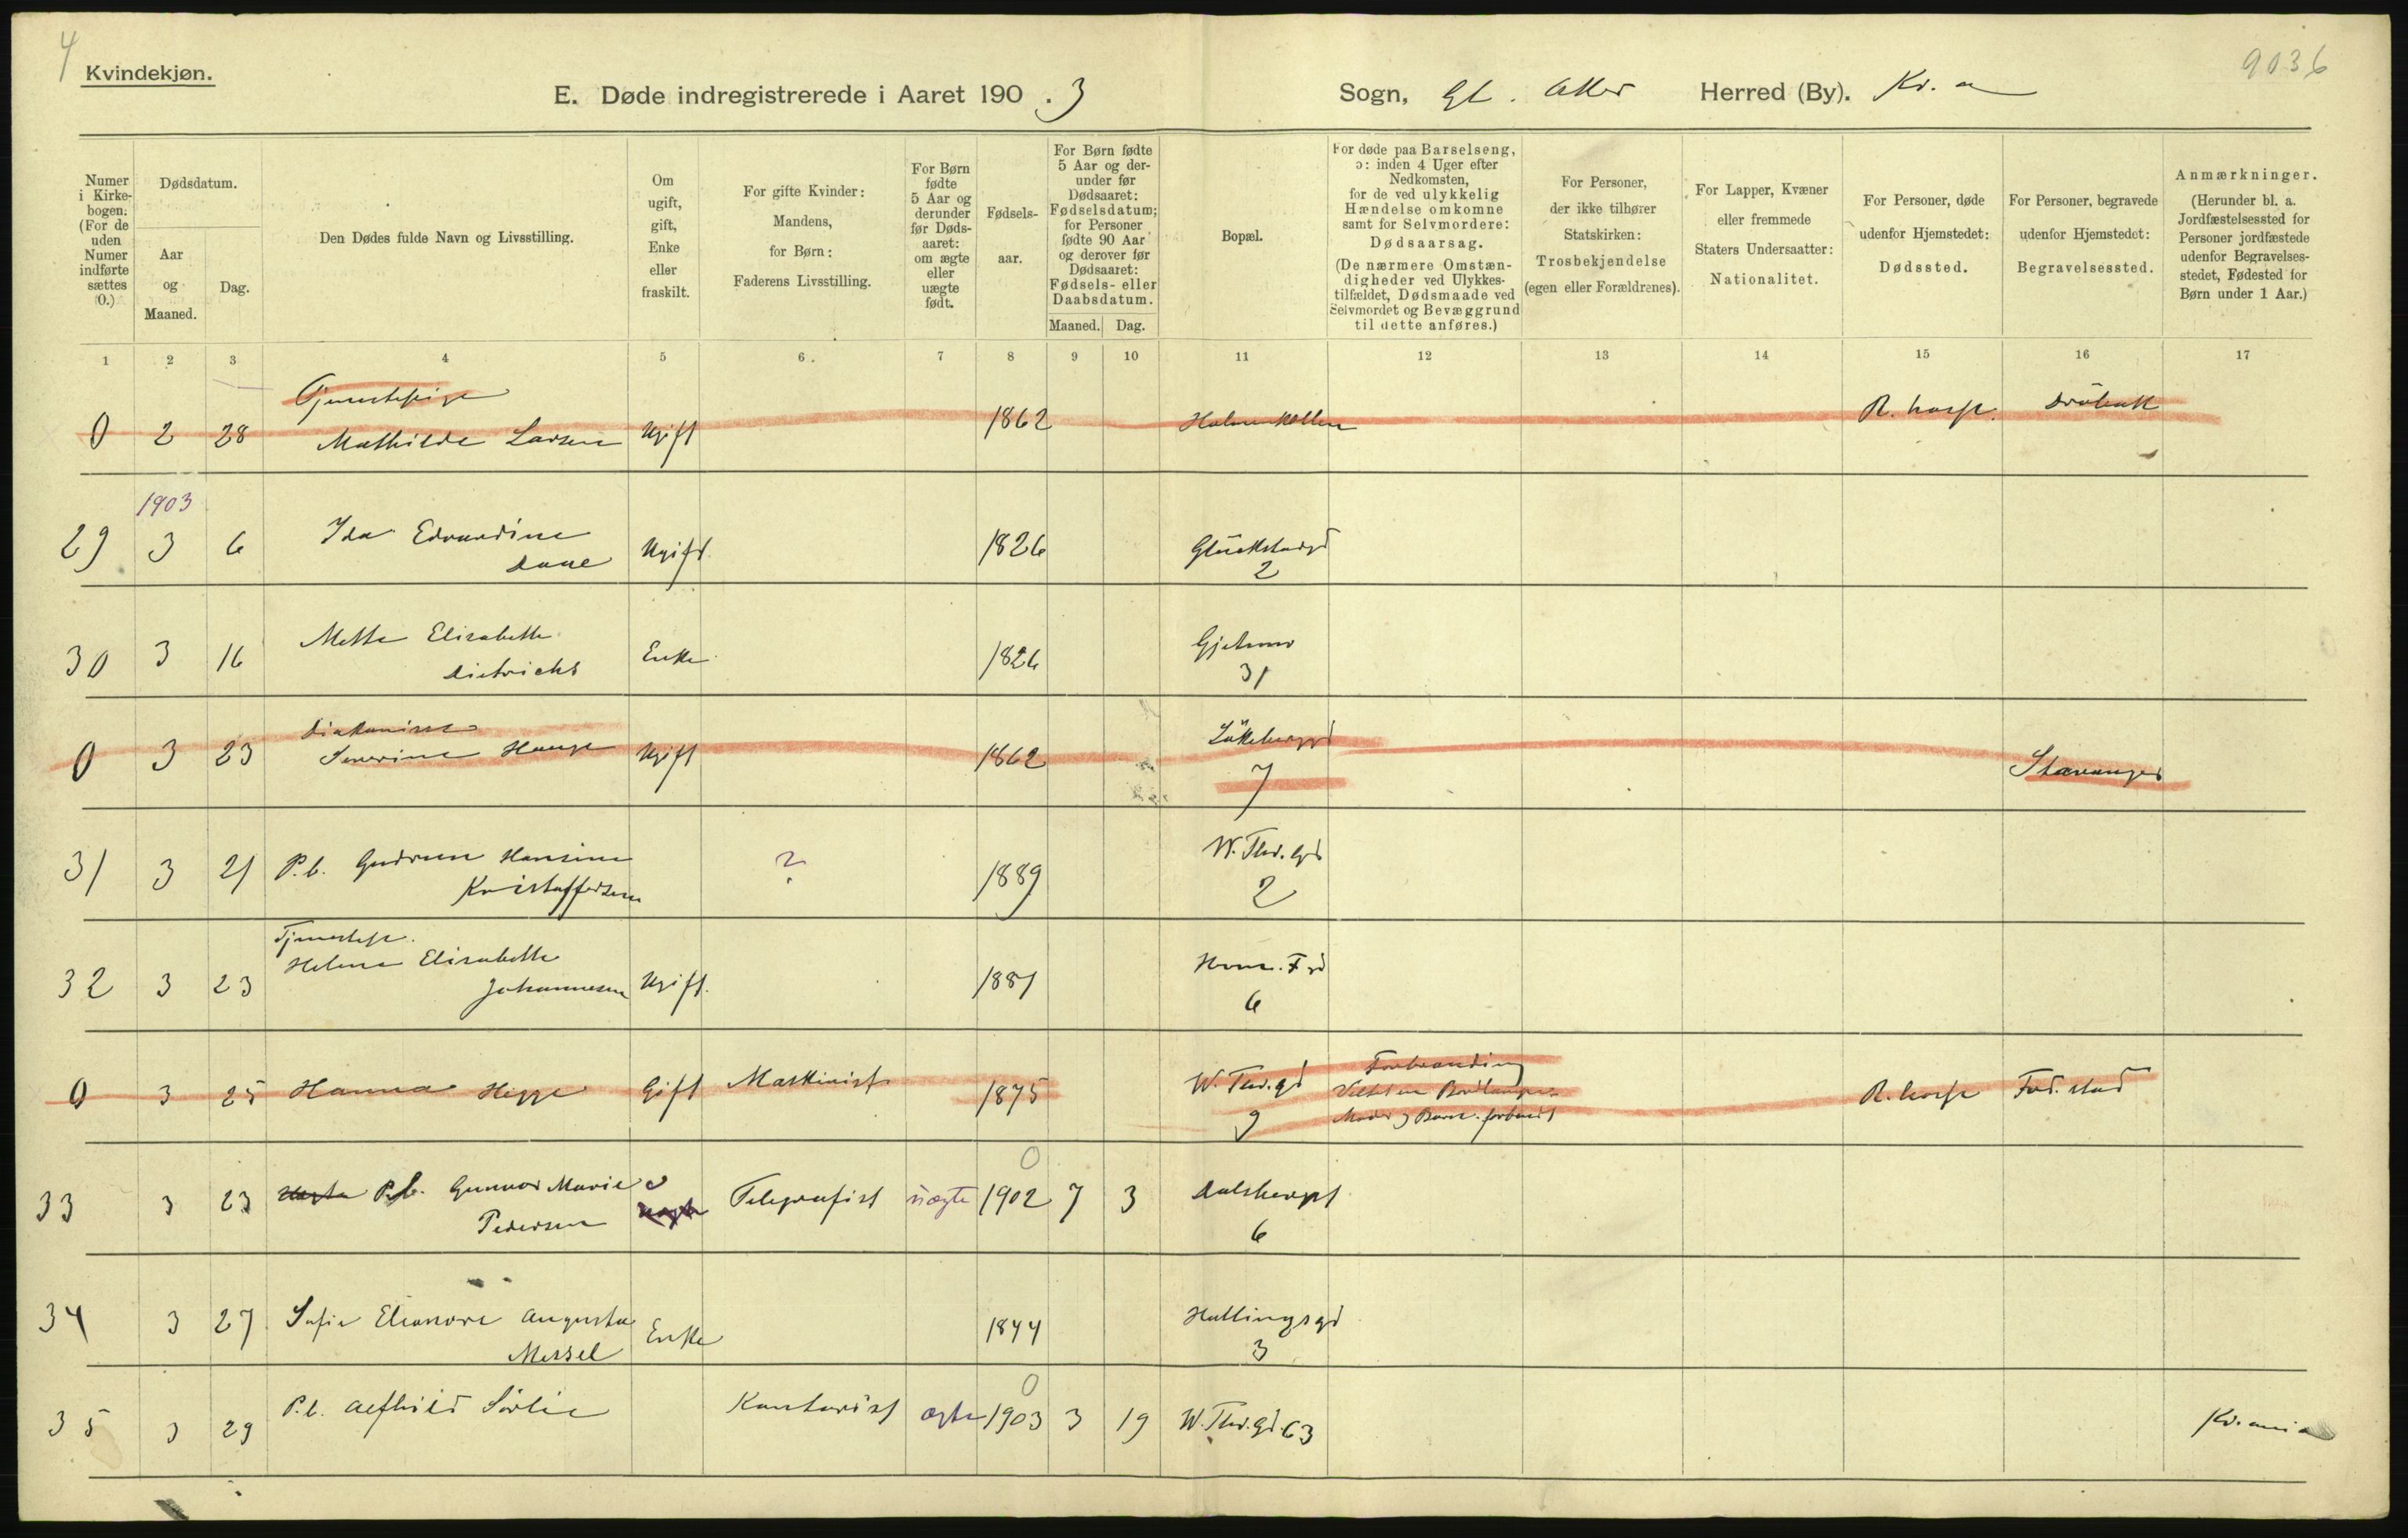 4
Kvindekjøn.
9036
E. Døde indregistrerede i Aaret 190 . 3
Sogn, Gl. Aker Herred (By). Kr. a
Numer
i Kirke-
bogen.
(For de
uden
Numer
indførte
sættes
0.)
Dødsdatum.
Aar
og
Maaned.
Dag.
Den Dødes fulde Navn og Livsstilling.
Om
ugift,
gift,
Enke
eller
fraskilt.
For gifte Kvinder:
Mandens,
for Børn:
Faderens Livsstilling.
For Børn
fødte
5 Aar og
derunder
før Døds-
aaret:
om ægte
eller
uægte
født.
Fødsels-
aar.
For Børn fødte
5 Aar og der-
under før
Dødsaaret:
Fødselsdatum;
for Personer
fødte 90 Aar
og derover før
Dødsaaret:
Fødsels- eller
Daabsdatum.
Maaned. Dag.
Bopæl.
For døde paa Barselseng,
ɔ: inden 4 Uger efter
Nedkomsten,
for de ved ulykkelig
Hændelse omkomne
samt for Selvmordere:
Dødsaarsag.
(De nærmere Omstæn-
digheder ved Ulykkes-
tilfældet, Dødsmaade ved
Selvmordet og Bevæggrund
til dette anføres.)
For Personer,
der ikke tilhører
Statskirken:
Trosbekjendelse
(egen eller Forældrenes).
For Lapper, Kvæner
eller fremmede
Staters Undersaatter:
Nationalitet.
For Personer, døde
udenfor Hjemstedet:
Dødssted.
For Personer, begravede
udenfor Hjemstedet:
Begravelsessted.
Anmærkninger.
(Herunder bl. a.
Jordfæstelsessted for
Personer jordfæstede
udenfor Begravelses-
stedet, Fødested for
Børn under 1 Aar.)
1 2 3 4 5 6. 7 8 9 10 11 12 13 14 15 16 17
Tjenestepige
0 2 28 Mathilde Larsen Ugift 1862 Holmenkollen R. hosp. Drøbak
1903
29 3 6 Ida Edvardine Ugift 1826
Glückstadgd
2
30 3 16 Mette Elisabeth
Dietrichs Enke 1826 Gjetemv
31
Diakonisse
0 3 23 Severine Hauge Ugift 1862 Løkkeberggd
7 Stavanger
31 3 21 P.b. Gudrun Hansine
Kristoffersen ? 1889 W. Thr. Gd
2
Tjenestep.
32 3 23 Helene Elisabeth
Johannesen Ugift. 1881
6
0 3 25 Hanna Hegge Gift Maskinist 1875 W. Thr. gd
9 Forbrænding
R. hosp Frd. stad
33 3 23 P.b. Gunvor Marie
Pedersen Telegrafist uægte 0 1902 7 3 Dalsbergst
6
34 3 27 Sofie Eleonore Augusta
Messel Enke 1844 Hallingsgd
3
35 3 29 P.b. Alfhild Sørlie Kontorist ægte 0 1903 3 19 W. Thr. Gd. 63 Kr.ania